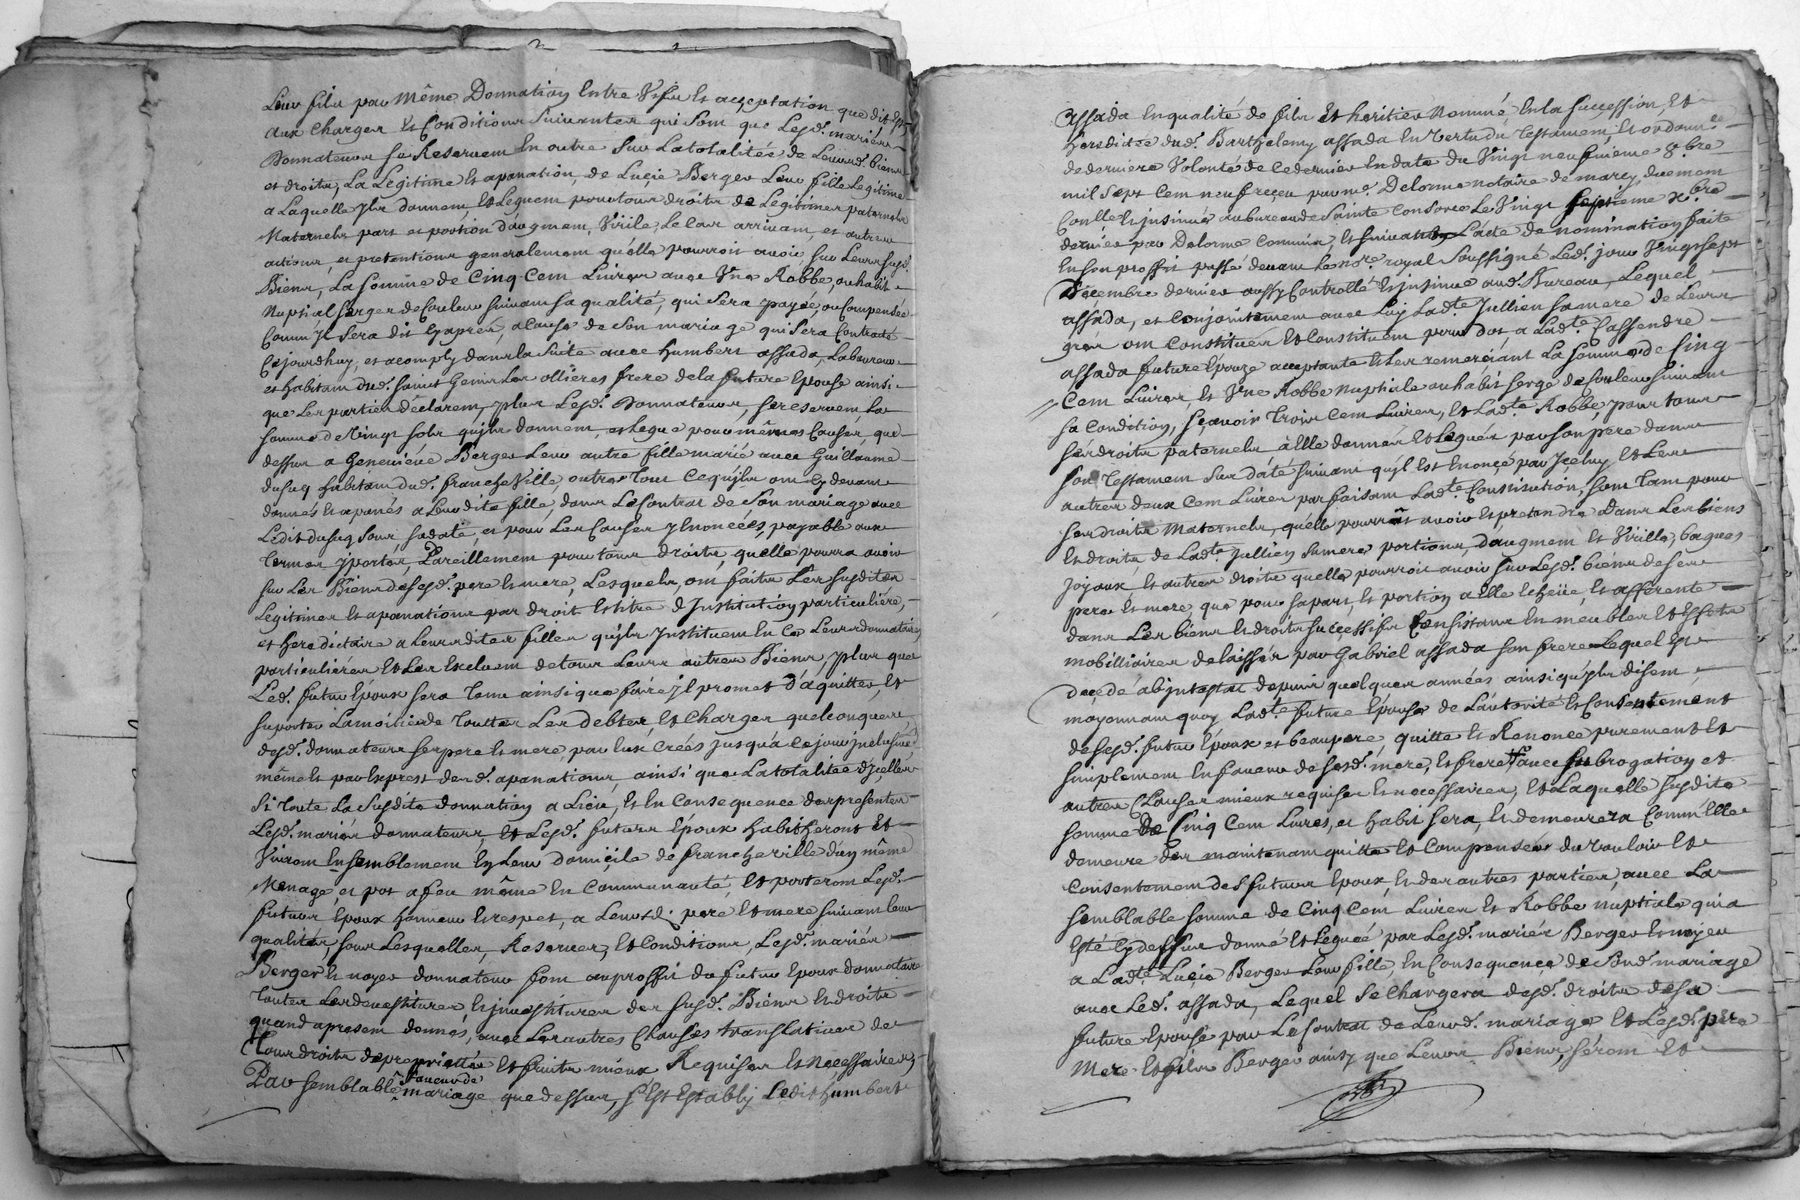 Leur fils par même Donnation Entre Vifs Et acceptation que dit est
aux Charges Et Conditions suivantes qui sont que Lesd. mariés
Donnateurs se Reservent En outre sur La totalitée de Leursd. biens
et droits, La Legitime Et apanation, de Luçie Berger Leur fille Legitime
a Laquelle Ils donnent Et Leguent pour tous droits de Legitimes paternels
Maternels part et portion d'augment, Virile, Le Cas arrivant, et autres
actions, et pretentions generalement qu'elle pourroit avoir sur Leurs susd.
Biens, La somme de Cinq Cent Livres avec Une Robbe, ou habit
Nuptial serges de Couleur suivant sa qualité, qui sera payée, ou Compensée
Comm'Il sera dit Cyaprès, a Cause de son mariage qui sera Contracté
Cejourdhuy, et acomply dans la suite avec humbert assada, Laboureur
et habitant dud. saint Genis Les ollières frere de la future Epouse ainsi
que Les parties déclarent, plus Lesd. Donnateurs, se reservent La
somme de Vingt sols qu'ils donnent, et Legue pour mêmes Causes, que
dessus a Geneviéve Berger Leur autre fille marié avec Guillaume
dusuq habitant dud. francheVille, outre Tout Ce qu'ils ont Cy devant
donnés Et apanés a Leurdite fille, dans Le Contrat de son mariage avec
Ledit dusuq sous sa date, et pour Les Causes y Enoncées, payable aux
Termes y portés, Pareillement pour tous droits, quelle pourra avoir
sur Les Biens desesd. pere Et mere, Lesquels, ont faits Les susdites
Legitimes Et apanations par droit Et titre d'Institution particulière,
et hereditaire a Leursdites filles qu'ils Instituent En Ce Leurs donnataires
particulières Et Les Excluent de tous Leurs autres Biens, plus que
Led. futur Epoux sera Tenu ainsi que faire Il promet d'aquitter, Et
suporter La moitié de Touttes Les debtes, Et Charges quelconques
desd. donnateurs ses pere Et mere, par Eux Créés jusqu'a Cejour inclusive.
même Et par Exprest desd. apanations, ainsi que La totalitée d'Icelles
Si toute La susdite donnation a Lieu, Et En Consequence des presentes
Lesd. mariés donnateurs, Et Lesd. futurs Epoux habitteront Et
Vivront Ensemblement En Leur domiçile de francheville d'un même
Menage, et pot a feu même En Communauté, Et porteront Lesd.
futurs Epoux honneur Et respet, a Leursd. pere Et mere suivant leur
qualités, sous Lesquelles, Reserves, Et Conditions, Lesd. mariés
Berger Et noyer donnateur font au proffit du futur Epoux donnataire
Toutes Les devestitures Et jnvestitures des susd. Biens Et droits
quand apresent donnés, avec Les autres Clauses translatives de
Tous droits de proprietée Et suitte mieux Requises Et Necessaires,
faveur de
Par semblable mariage que dessus, s'Est Estably Ledit humbert
assada En qualité de fils Et heritier Nommé, En la succession, Et
heredittée dud. Barthelemy assada En Vertu du Testament, Et ordonn.ce
de dernière Volonté de Ce dernier En date du Vingt neufvieme 8.bre
mil sept Cent neuf reçeu par me. Delorme notaire de marcy duement
Con.llé Et jnsinué au bureau de Sainte Consorce Le Vingt septieme x.bre
dernier par Delorme Commis, Et suivant L'acte de nomination faite
En son proffit passé devant Le no.re royal Soussigné Led. jour Vingt sept
Décembre dernier aussy Controllé Et jnsinué aud. Bureau, Lequel
assada, et Conjointement avec Luy Lad.te Jullien sa mere de Leurs
gres ont Constitués Et Constituent pour dot a Lad.te Cassendre
assada future Epouze acceptante Et Les remerçiant La somme de Cinq
Cent Livres, Et Vne Robbe Nuptiale ou habit serge de Couleur suivant
sa Condition, sçavoir Trois Cent Livres, Et Lad.te Robbe, pour tous
ses droits paternels, à Elle donnés Et Legués par son pere dans
son Testament sur daté suivant qu'il Est Enonçé par Jceluy Et Les
autres deux Cent Livres parfaisant Lad.te Constitution, sont Tant pour
ses droits Maternels, qu'elle pourroit avoir Et pretendre Dans Les biens
Et droits de Lad.te Jullien sa mere portions, d'augment Et Virille, bagues
Joyaux Et autres droits quelle pourroit avoir sur Lesd. biens desd.
pere Et mere, que pour sa part, Et portion a Elle Echeüe, Et afferente
dans Les biens Et droits suçcessifs Consistans En meubles Et Effets
mobilliaires delaissés par Gabriel assada son frere Lequel Est
deçedé abjntestat depuis quelques années ainsi qu'ils disent,
moyennant quoy Lad.te future Epouse de L'autorité Et Consentement
desesd. futur Epoux et beaupere, quitte Et Renonce purement Et
simplement En faveur de sesd. mere, Et frere avec subrogation et
autres Clauses mieux requises Et necessaires, Et Laquelle susdite
somme de Cinq Cent Livres, et habit sera, Et demeurera Comm'Elle
demeure des maintenant quitte Et Compensés du vouloir Et
Consentement des futurs Epoux Et des autres parties, avec La
semblable somme de Cinq Cent Livres Et Robbe nuptiale qui a
Esté Cydessus donné Et Legué par Lesd. mariés Berger Et noyer
a Lad.te Luçie Berger Leur fille, En Consequence de sond. mariage
avec Led. assada, Lequel Se Chargera desd. droits de sa
future Epouse par Le Contrat de Leurd. mariage Et Lesd. pere
Mere Et fils Berger ainsy que Leurs Biens, seront Et